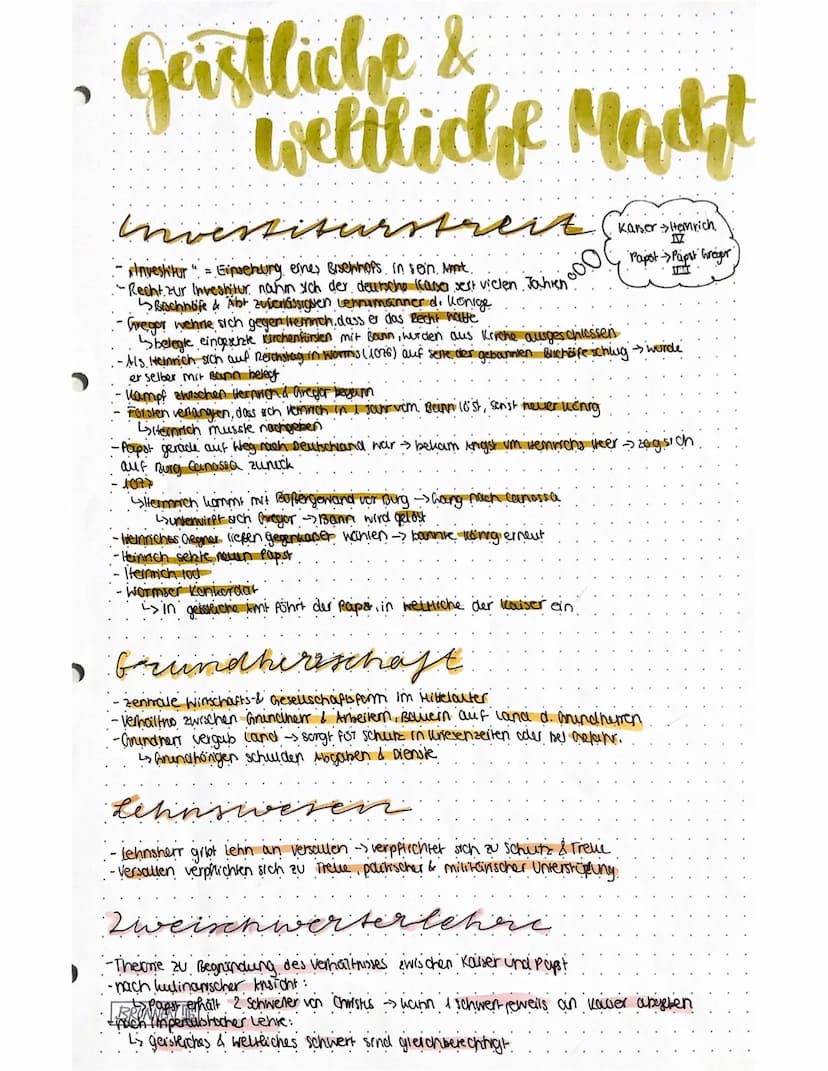 Geistliche &
weltliche Macht
Investiturstreit
Kaiser → Heinrich
IV
Papst → Papst Gregor
VII
- "Investitur" = Einsetzung eines Bischhofs in sein Amt
- Recht zur Investitur nahm sich der deutsche Kaiser seit vielen Jahren
↳ Bischhöfe & Abt zuverlässigsten Lehnsmänner d. Könige
- Gregor wehrte sich gegen Heinrich, dass er das Recht hätte
↳ belegte eingesetzte Kirchenfürsten mit Bann, wurden aus Kirche ausgeschlossen
- Als Heinrich sich auf Reichstag in Worms (1076) auf Seite der gebannten Bischöfe schlug → wurde
er selber mit Bann belegt
- Kampf zwischen Heinrich & Gregor begann
- Fürsten verlangten, dass sich Heinrich in 1 Jahr vom Bann löst, sonst neuer König
↳ Heinrich musste nachgeben
- Papst gerade auf Weg nach Deutschland war → bekam Angst um Heinrichs Heer → zog sich
auf Burg Canossa zurück
- 1077
↳ Heinrich kommt mit Büßergewand vor Burg → Gang nach Canossa
↳ unterwirft sich Gregor → Bann wird gelöst
- Heinriches Gegner ließen Gegenkaiser wählen → bannte König erneut
- Heinrich setzte neuen Papst
- Heinrich tod
- Wormser Konkordat
↳ In geistliche Amt führt der Papst, in weltliche der Kaiser ein
Grundherrschaft
- zentrale Wirtschafts- & Gesellschaftsform im Mittelalter
- Verhältnis zwischen Grundherr & Arbeitern, Bauern auf Land d. Grundherren
- Grundherr vergab Land → sorgt für Schutz in Krisenzeiten oder bei Gefahr.
↳ Grundhörigen schulden Abgaben & Dienste
Lehnswesen
- Lehnsherr gibt Lehn an Versallen → verpflichtet sich zu Schutz & Treue
- Versallen verpflichten sich zu Treue, politischer & militärischer Unterstützung
Zweischwerterlehre
- Theorie zu Begründung des Verhältnisses zwischen Kaiser und Papst
- nach kulinarischer Ansicht:
↳ Papst erhält 2 Schwerter von Christus → kann 1 Schwert jeweils an Kaiser abgeben
- nach Imperialistischer Lehre:
↳ geistliches & weltliches Schwert sind gleichberechtigt